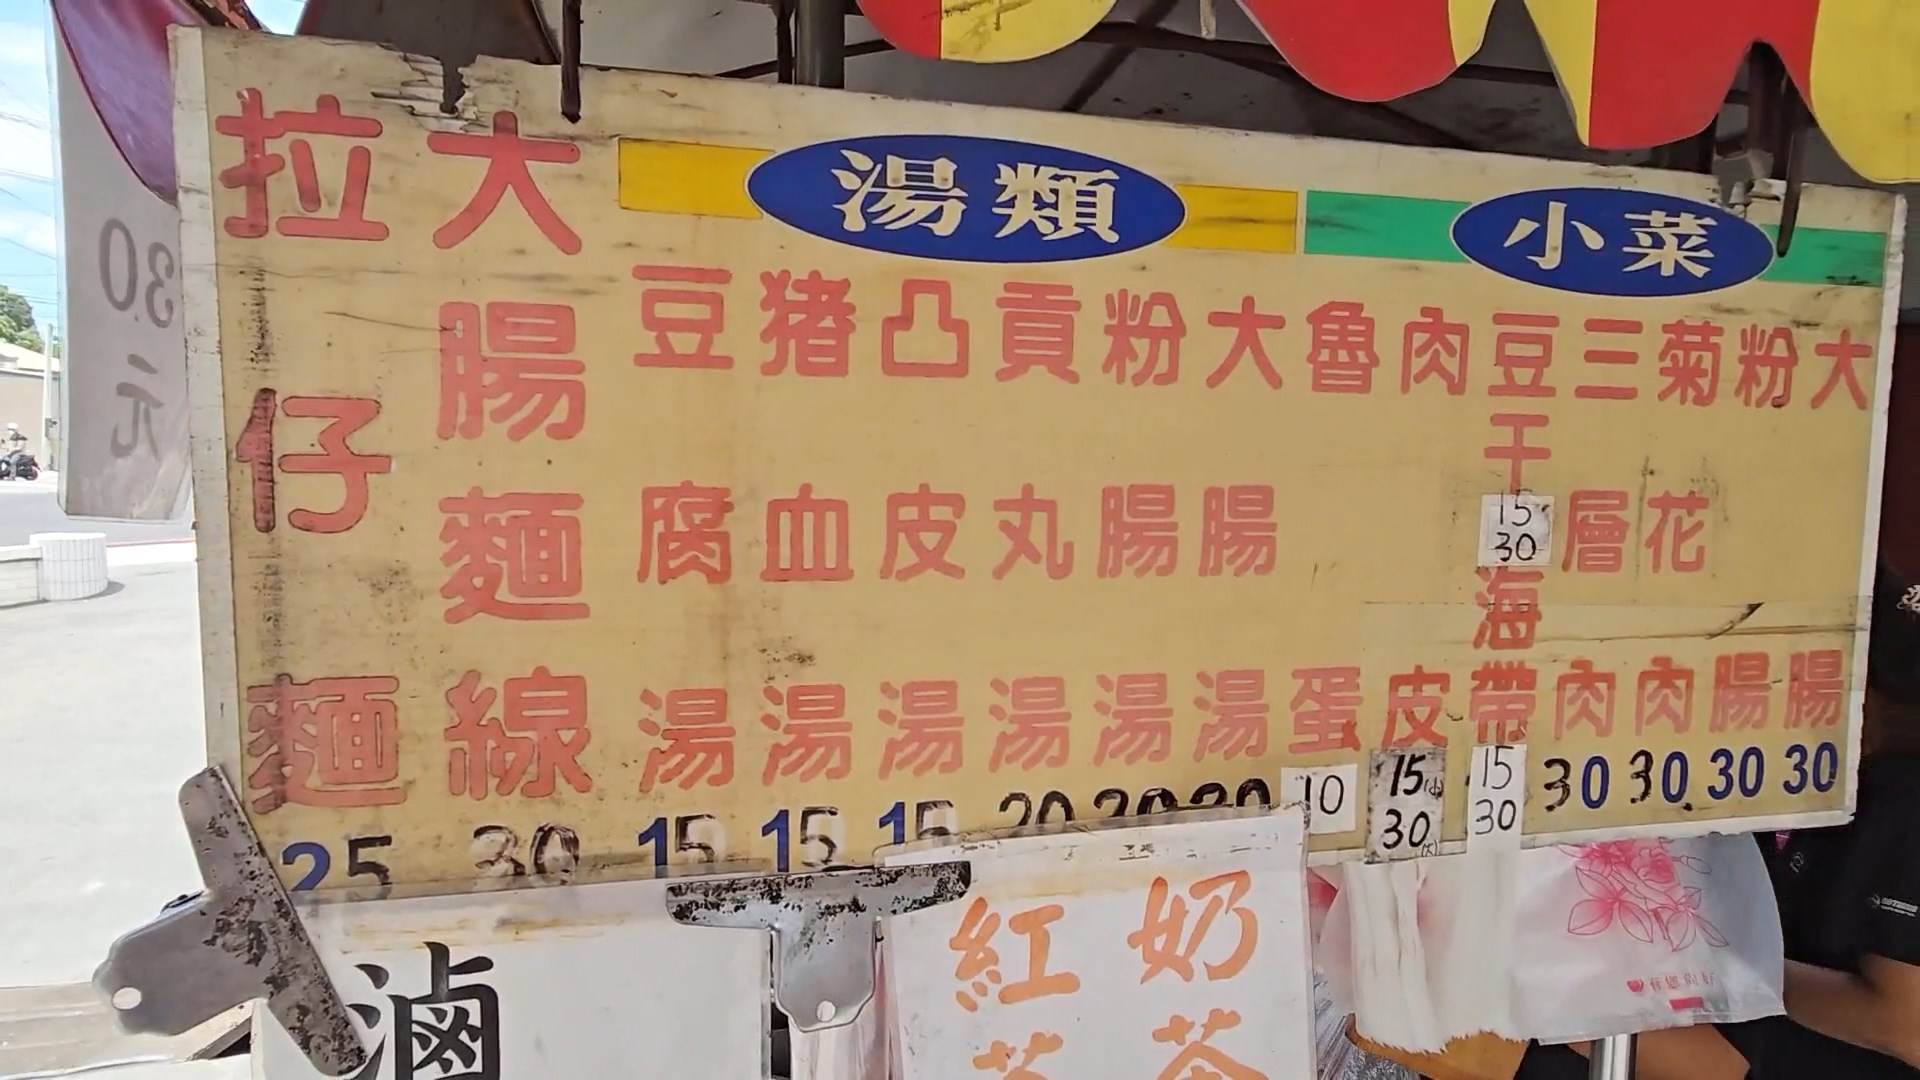 拉仔麵 25
大腸麵線 30
湯類
豆腐湯 15
豬血湯 15
凸皮湯 15
貢丸湯 20
粉腸湯 30
大腸湯 30
小菜
魯蛋 10
肉皮 15(小) 30(大)
豆干 15 30
海帶 15 30
三層肉 30
菊花肉 30
粉腸 30
大腸 30
30元
滷
紅茶
奶茶